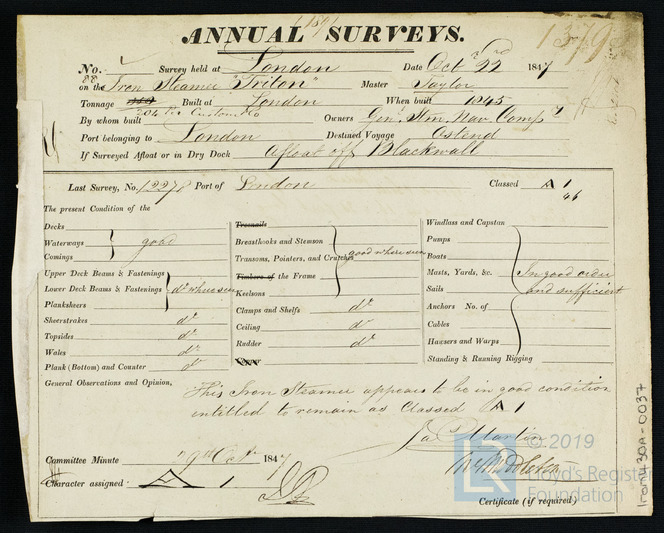 1379
ANNUAL SURVEYS.
No. Survey held at London Date Oct 22nd 1847
on the Iron Steamer "Triton" Master Taylor
Tonnage Built at London When built 1845
By whom built Owners Gen. Stm. Nav. Compy
Port belonging to London Destined Voyage Ostend
If Surveyed Afloat or in Dry Dock Afloat off Blackwall
Last Survey, No. 12278 Port of London Classed A 1
46
The present Condition of the
Decks
Waterways good
Comings
Upper Deck Beams & Fastenings
Lower Deck Beams & Fastenings do where seen
Planksheers
Sheerstrakes do
Topsides do
Wales do
Plank (Bottom) and Counter do
Treenails
Breasthooks and Stemson
Transoms, Pointers, and Crutches good where seen
Timbers of the Frame
Keelsons
Clamps and Shelfs do
Ceiling do
Rudder do
Windlass and Capstan
Pumps
Boats
Masts, Yards, &c. In good order
Sails and sufficient
Anchors No. of
Cables
Hawsers and Warps
Standing & Running Rigging
General Observations and Opinion,
This Iron Steamer appears to be in good condition
entitled to remain as Classed A 1
Jas Martin
Committee Minute 1847
Character assigned A 1
Certificate (if required)
Iron430A-0037
LR
© 2019
Lloyd's Register
Foundation